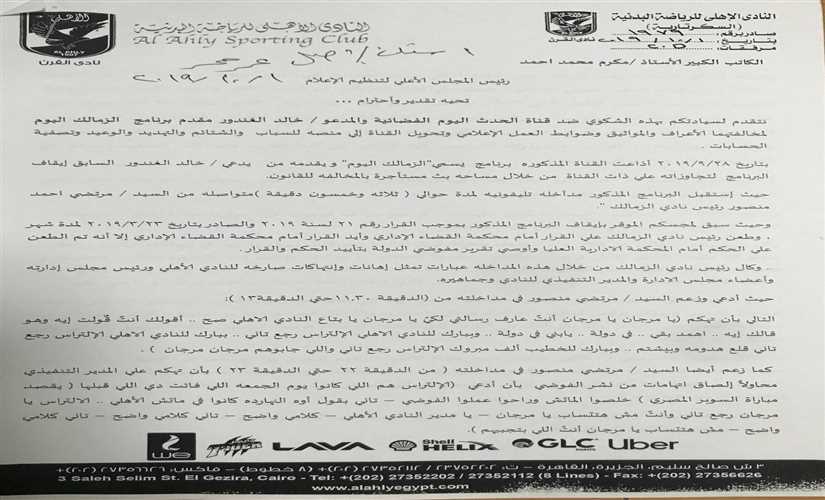 النادى الأهلى للرياضة البدنية
Al Ahly Sporting Club
نادى القرن
النادى الأهلى للرياضة البدنية
(السكرتارية)
صادر برقم:
بتاريخ: نادى القرن
مرفقات:
الكاتب الكبير الأستاذ /مكرم محمد احمد
٢٠١٩/١٠/١
رئيس المجلس الأعلي لتنظيم الإعلام
تحيه تقدير وأحترام ...
نتقدم لسيادتكم بهذه الشكوي ضد قناة الحدث اليوم الفضائية والمدعو / خالد الغندور مقدم برنامج الزمالك اليوم
لمخالفتهما الأعراف والمواثيق وضوابط العمل الإعلامي وتحويل القناة إلي منصه للسباب والشتائم والتهديد والوعيد وتصفية
الحسابات .
بتاريخ ٢٠١٩/٩/٢٨ أذاعت القناة المذكوره برنامج يسمي"الزمالك اليوم" ويقدمه من يدعي / خالد الغندور السابق إيقاف
البرنامج لتجاوزاته علي ذات القناة من خلال مساحه بث مستأجرة بالمخالفه للقانون.
حيث إستقبل البرنامج المذكور مداخله تليفونيه لمدة حوالي ( ثلاثه وخمسون دقيقة )متواصله من السيد / مرتضي احمد
منصور رئيس نادي الزمالك ".
وحيث سبق لمجسكم الموقر بإيقاف البرنامج المذكور بموجب القرار رقم ٢١ لسنة ٢٠١٩ والصادر بتاريخ ٢٠١٩/٣/٢٣ لمدة شهر
. وطعن رئيس نادي الزمالك علي القرار أمام محكمة القضاء الإداري وأيد القرار أمام محكمة القضاء الإداري إلا أنه تم الطعن
علي الحكم أمام المحكمة الادارية العليا وأوصي تقرير مفوضي الدولة بتأييد الحكم والقرار.
.. وكال رئيس نادي الزمالك من خلال هذه المداخله عبارات تمثل إهانات وإنتهاكات صارخه للنادي الأهلي ورئيس مجلس إدارته
وأعضاء مجلس الادارة والمدير التنفيذي للنادي وجماهيره.
حيث أدعي وزعم السيد / مرتضي منصور في مداخلته من (الدقيقة ١١.٣٠ حتي الدقيقة١٣ ):
التالي بأن تهكم (يا مرجان يا مرجان أنتْ عارف رسالتي لكيْ يا مرجان يا بتاع النادي الاهلي صح .. أقولك أنتْ قولت إيه وهو
قالك إيه .. احمد بقي .. في دولة .. يابني في دولة .. ويبارك للنادي الأهلي الإلتراس رجع تاني .. يبارك للنادي الأهلي الإلتراس رجع
تاني قلع هدومه وبيشتم .. ويبارك للخطيب ألف مبروك الإلتراس رجع تاني واللي جابوهم مرجان مرجان ) .
كما زعم أيضا السيد / مرتضي منصور في مداخلته ( من الدقيقة ٢٢ حتي الدقيقة ٢٣ ) بأن تهكم علي المدير التنفيذي
محاولاً إلصاق اتهامات من نشر الفوضي بأن أدعي (الإلتراس هم اللي كانوا يوم الجمعه اللي فاتت دي اللي قبلها ( يقصد
مباراة السوبر المصري ) خلصوا الماتش وراحوا عملوا الفوضي – تاني بقول أوه النهارده كانوا في ماتش الأهلي .. الالتراس يا
مرجان رجع تاني وأنتْ مش هتتساب يا مرجان – يا مدير النادي الأهلي – كلامي واضح – تاني كلامي واضح – تاني كلامي
واضح – مش هتتساب يا مرجان أنتْ اللي بتجيبهم ).
we
LAVA
Shell HELIX
GLC PAINTS
Uber
٣ ش صالح سليم، الجزيرة، القاهرة - ت: ٢٧٣٥٢٢٠٢ / ٢٧٣٥٢١١٢ (٢٠٢)+ (٨ خطوط) - فاكس: ٢٧٣٥٦٦٢٦ (٢٠٢)+
3 Saleh Selim St. El Gezira, Cairo - Tel: +(202) 27352202 / 27352112 (8 Lines) - Fax: +(202) 27356626
www.alahlyegypt.com